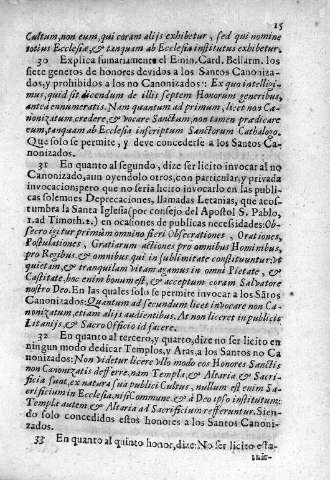 15
Cultum, non eum, qui coram alijs exhibetur, sed qui nomine
totius Ecclesiæ, & tanquam ab Ecclesia institutus exhibetur.
30 Explica sumariamente el Emin. Card. Bellarm. los
siete generos de honores devidos a los Santos Canoniza-
dos, y prohibidos a los no Canonizados: Ex quo intelligi-
mus, quid sit dicendum de illis septem Honorum generibus,
antea ennumeratis. Nam quantum ad primum, licet non Ca-
nonizatum, credere, & vocare Sanctum, non tamen prædicare
eum, tanquam ab Ecclesia inscriptum Sanctorum Cathalogo.
Que solo se permite, y deve concederse a los Santos Ca-
nonizados.
31 En quanto al segundo, dize ser licito invocar al no
Canonizado, aun oyendolo otros, con particular, y privada
invocacion, pero que no seria licito invocarlo en las publi-
cas solemnes Deprecaciones, llamadas Letanias, que acos-
tumbra la Santa Iglesia (por consejo del Apostol S. Pablo,
1. ad Timoth. 2.) en ocasiones de publicas necessidades: Ob-
secro igitur primùm omnino fieri Obsecrationes, Orationes,
Postulationes, Gratiarum actiones pro omnibus Hominibus,
pro Regibus, & omnibus qui in sublimitate constituuntur: vt
quietam, & tranquilam vitam agamus in omni Pietate, &
Castitate, hoc enim bonum est, & acceptum coram Salvatore
nostro Deo. En las quales solo se permite invocar a los Sãtos
Canonizados: Quantum ad secundum licet invocare non Ca-
nonizatum, etiam alijs audientibus. At non liceret in publicis
Litanijs, & Sacro Officio id facere.
32 En quanto al tercero, y quarto, dize no ser licito en
ningun modo dedicar Templos, y Aras, a los Santos no Ca-
nonizados: Non videtur licere vllo modo eos Honores Sanctis
non Canonizatis defferre, nàm Templa, & Altaria & Sacri-
ficia sunt, ex natura sua publici Cultus, nullum est enim Sa-
crificium in Ecclesia, nisi Commune, & à Deo ipso institutum:
Templa autem & Altaria ad Sacrificium refferuntur. Sien-
do solo concedidos estos honores a los Santos Canoni-
zados.
33 En quanto al quinto honor, dize: No ser licito esta-
tuir-